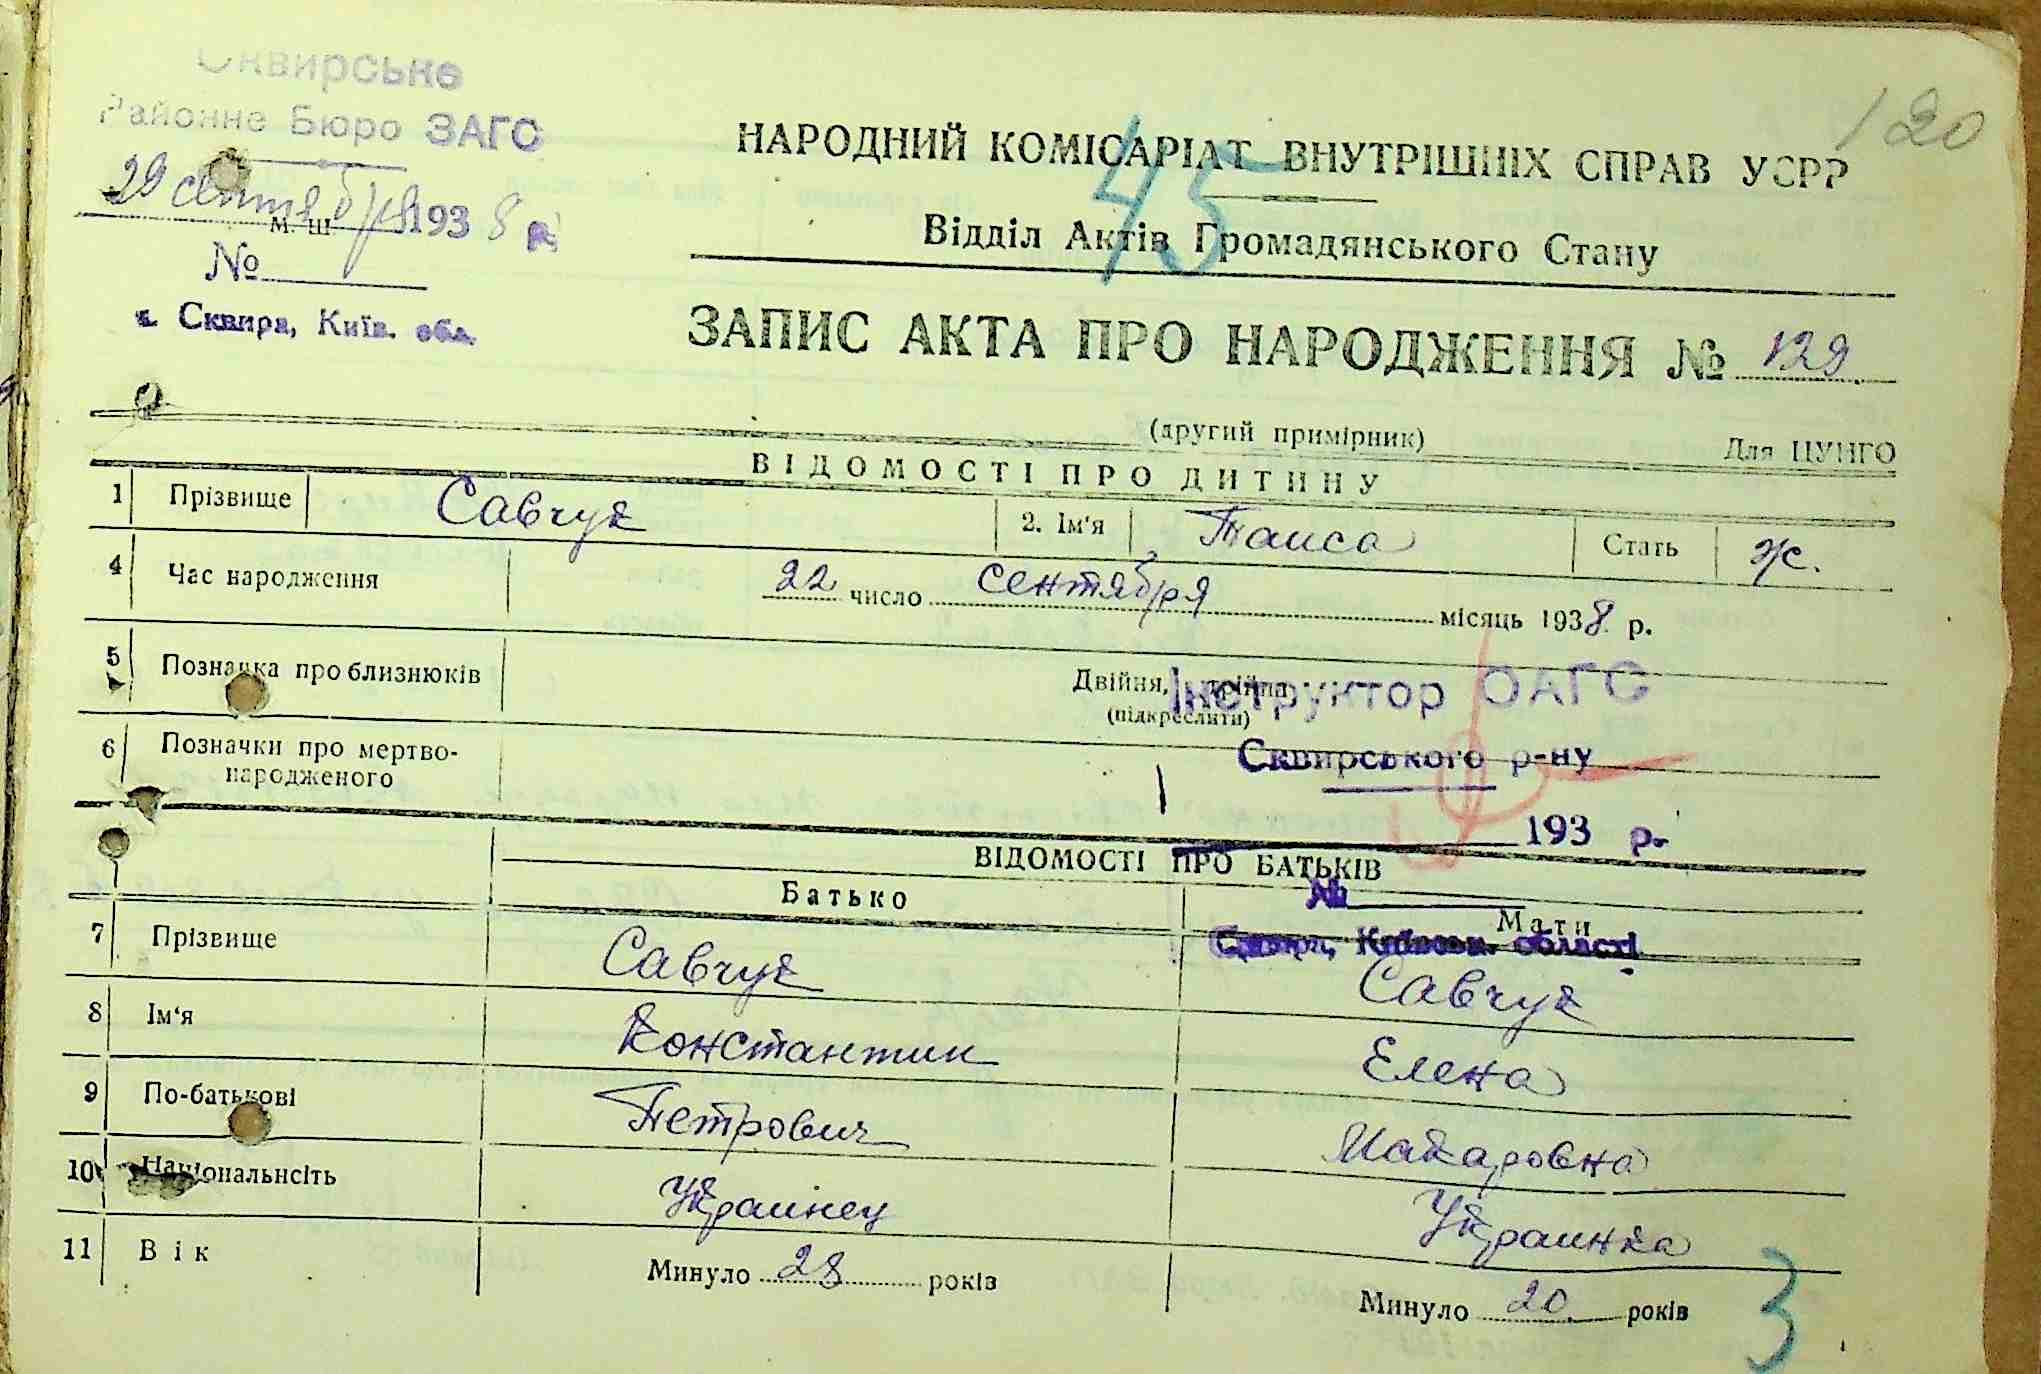 Сквирське
Районне Бюро ЗАГС
29 сентября 1938 р.
М. Ш
№
м. Сквира, Київ. обл.
120
НАРОДНИЙ КОМІСАРІАТ ВНУТРІШНІХ СПРАВ УСРР
45
Відділ Актів Громадянського Стану
ЗАПИС АКТА ПРО НАРОДЖЕННЯ № 129
(другий примірник) Для ЦУНГО
ВІДОМОСТІ ПРО ДИТИНУ
1 Прізвище Савчук 2. Ім'я Таиса Стать Ж.
4 Час народження 22 число сентября місяць 1938 р.
5 Позначка про близнюків Двійня, трійня
(підкреслити)
Інструктор ОАГС
6 Позначки про мертво-
народженого
Сквирського р-ну
193 р.
ВІДОМОСТІ ПРО БАТЬКІВ
№
Батько Мати
Сквира, Київськ. області
7 Прізвище Савчук Савчук
8 Ім'я Константин Елена
9 По-батькові Петрович Макаровна
10 Національнсіть Украинец Украинка
11 Вік Минуло 28 років Минуло 20 років
3